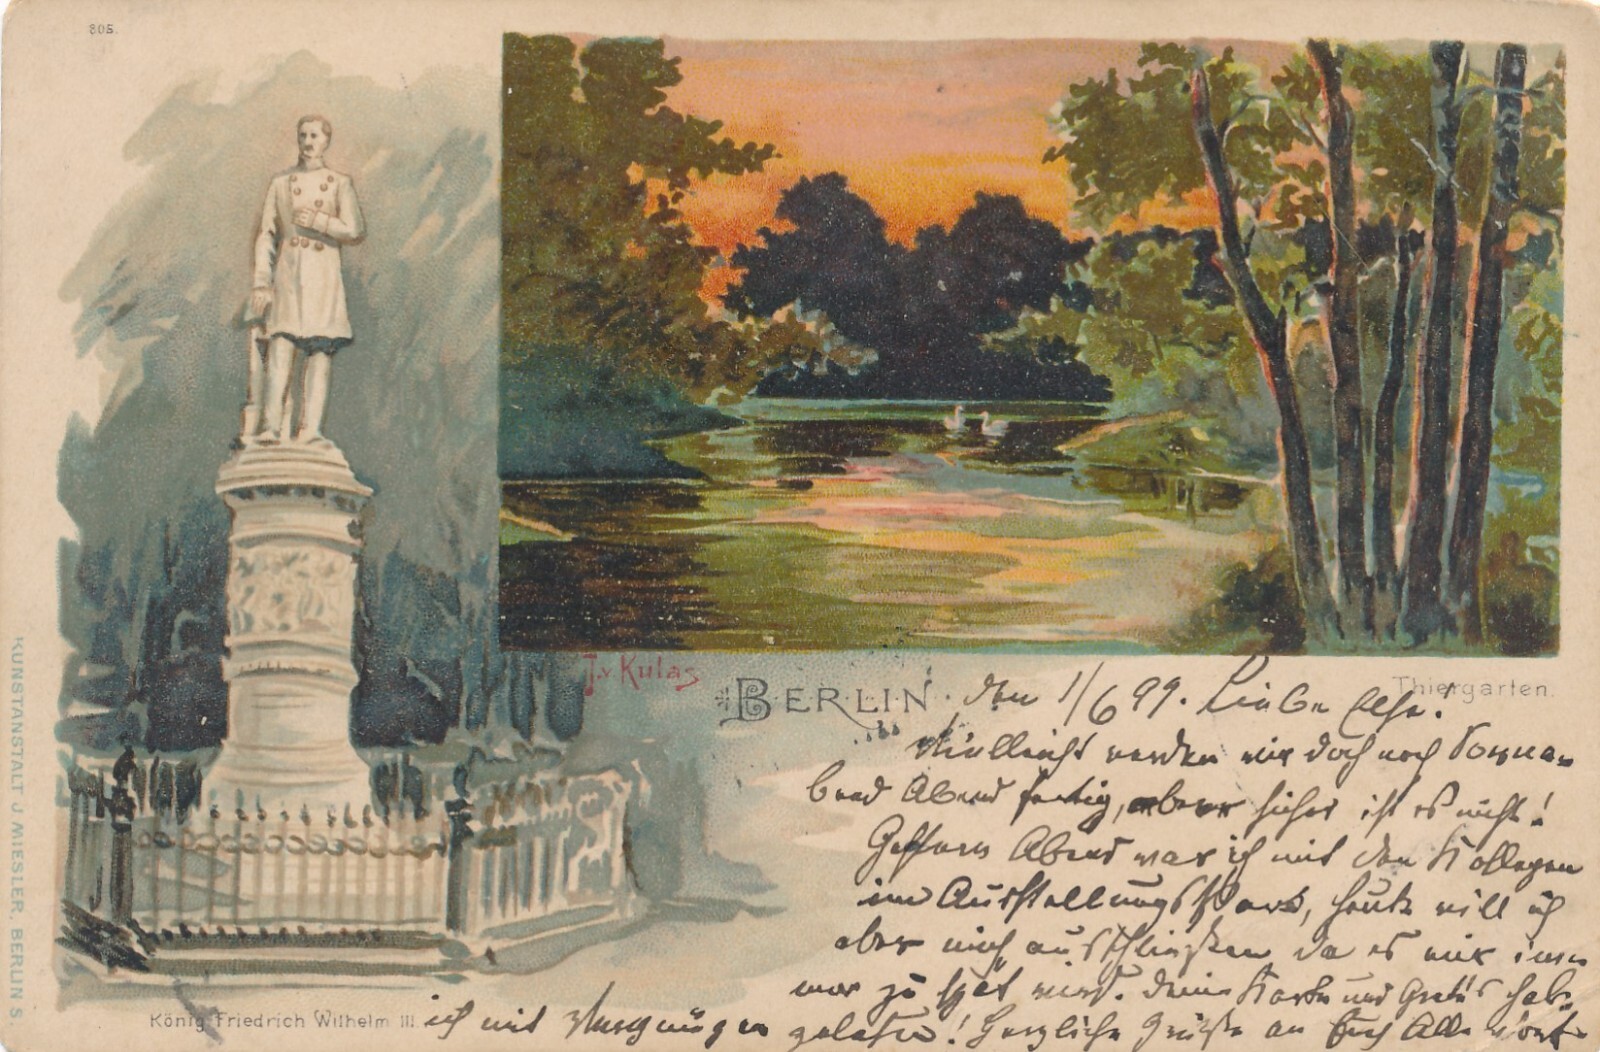 805.
J. v Kulas
BERLIN. den 1/6 99. Liebe Else!
Thiergarten.
Vielleicht werden wir doch noch Sonna-
bend Abend fertig, aber sicher ist es nicht!
Gestern Abend war ich mit den Kollegen
im Ausstellungspark, heute will ich
aber mich ausschließen da es mir im-
mer zu spät wird. Deine Karte und Grete's hab.
ich mit Vergnügen gelesen! Herzliche Grüße an Euch Alle
König Friedrich Wilhelm III.
KUNSTANSTALT J. MIESLER, BERLIN S